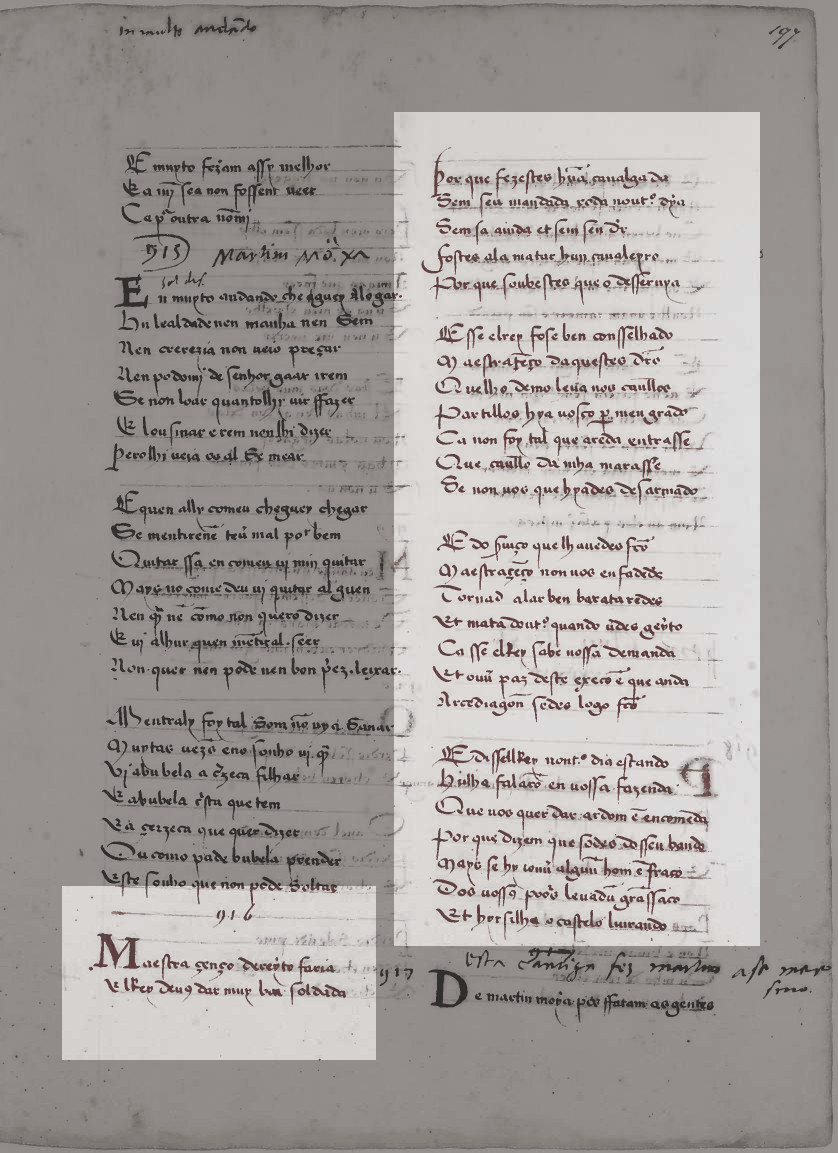 in muyto andando
197
E muyto feziam assy melhor
E a mj̃ sea non fossent veer
Ca pᵃ outra nom̃
915 Martim Mõxa
sol dis.
En muyto andando cheguey Alogar.
Hu lealdade nen manha nen Sem
Nen crerezia non veio preçar
Nen podomj̃ de senhor gaar irem
Se non loar quantolhy vir ffazer
E lousinar e rem nonlhi dizer
Perolhi veia o al Se mear
E quen assy comeu cheguey chegar
Se mentirenẽ teũ mal por bem
Quitar ssa en comeu vj min quitar
Mays no come deu vj quitar alguen
Nen q̃ nẽ cõmo non quero dizer
E vj alhur quen mẽtral. seer
Non quer nen pode nen bon p̃ez. leixar.
Mentraly foy tal Som nõ vy a Sanar
Muytas vez̃s eno sonho vj q̃
Vj abubela a çr̃zeca filhar
E abubela c̃sta que tem
E a cerzeca que quer dizer
Ou como pade bubela prender
Este sonho que non pode Soltar
916
Maestra çenço dereyto faria
Elrey deuꝯ dar muy ban soldada
Por que fezestes hũã caualgada
Sem seu mandada roda nout.º dya
Sem sa aiuda et sem seu dr̃
Fostes ala matar hun caualeyro
Por que soubestes que o desseruya
E sse elrey fose ben consselhado
Maestraçẽço daquestes dr̃s
Que lho demo leua nos cauallos
Partillos hya uosco per men grado
Ca non foy tal que areda entrasse
Que cauallo da nha matasse
Se non uos que hyades desarmado
E do huiço que lhauedes fcõ
Maestraçẽço non uos enfadede
Tornad alar ben baratar̃edes
Et matad out.º quando ũdes geyto
Ca sse elRey sabe uossa demanda
Et ouũ paz deste exeço ẽ que anda
Arcediagoñ sedes logo fcõ
E dissellRey nont.º dia estando
Hu lha falarõ en uossa fazenda
Que uos quer dar ardom ẽ encomẽda
Por que dizem que sodes do seu bando
Mays se hy iouũ alguũ hom ẽ fraco
Dos uossꝯ poõs leuadu grassaco
Et hor silha o castelo liurando
esta cantiga fez martin
917 De martin moya pos ffaram as gentes